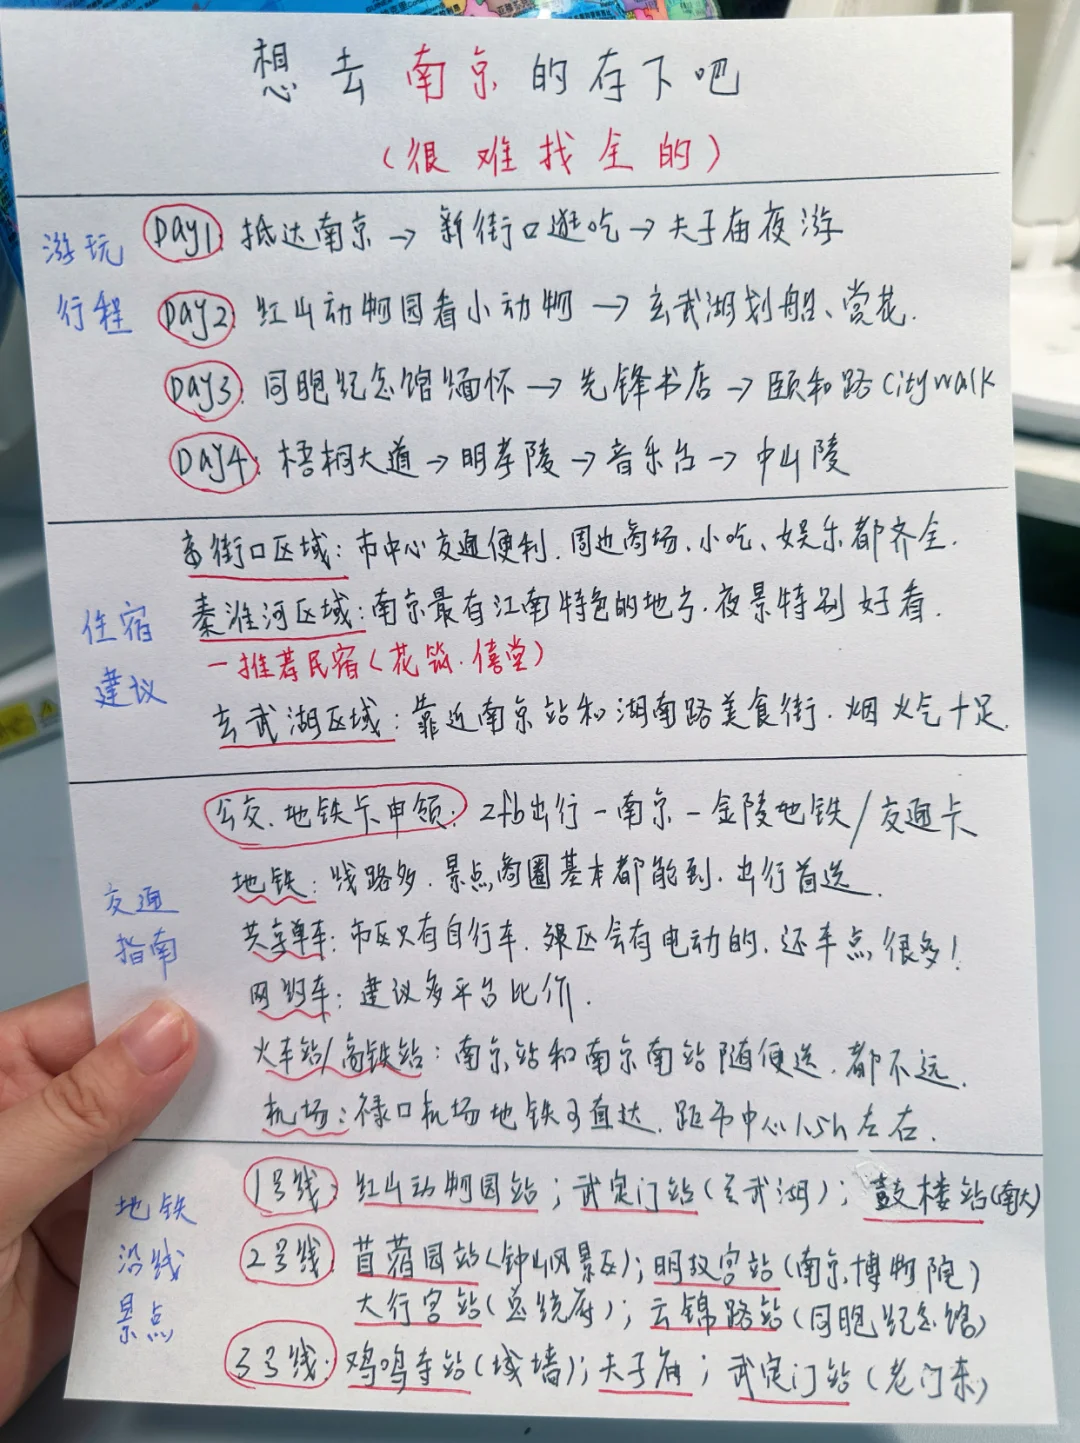 想去南京的存下吧
(很难找全的)
游玩
行程
Day1: 抵达南京→新街口逛吃→夫子庙夜游
Day2: 红山动物园看小动物→玄武湖划船、赏花.
Day3: 同胞纪念馆缅怀→先锋书店→颐和路Citywalk
Day4: 梧桐大道→明孝陵→音乐台→中山陵
住宿
建议
街口区域: 市中心交通便利.周边商场、小吃、娱乐都齐全.
秦淮河区域: 南京最有江南特色的地方.夜景特别好看.
一推荐民宿(花筑.僖堂)
玄武湖区域: 靠近南京站和湖南路美食街.烟火气十足.
交通
指南
公交、地铁卡申领: zfb出行-南京-金陵地铁/交通卡
地铁: 线路多.景点商圈基本都能到.出行首选.
共享单车: 市区只有自行车.郊区会有电动的.还车点很多!
网约车: 建议多平台比价.
火车站/高铁站: 南京站和南京南站随便选.都不远.
机场: 禄口机场地铁可直达.距市中心1.5h左右.
地铁
沿线
景点
1号线: 红山动物园站; 武定门站(玄武湖); 鼓楼站(南大)
2号线: 苜蓿园站(钟山风景区); 明故宫站(南京博物院)
大行宫站(总统府); 云锦路站(同胞纪念馆)
3号线: 鸡鸣寺站(城墙); 夫子庙; 武定门站(老门东)